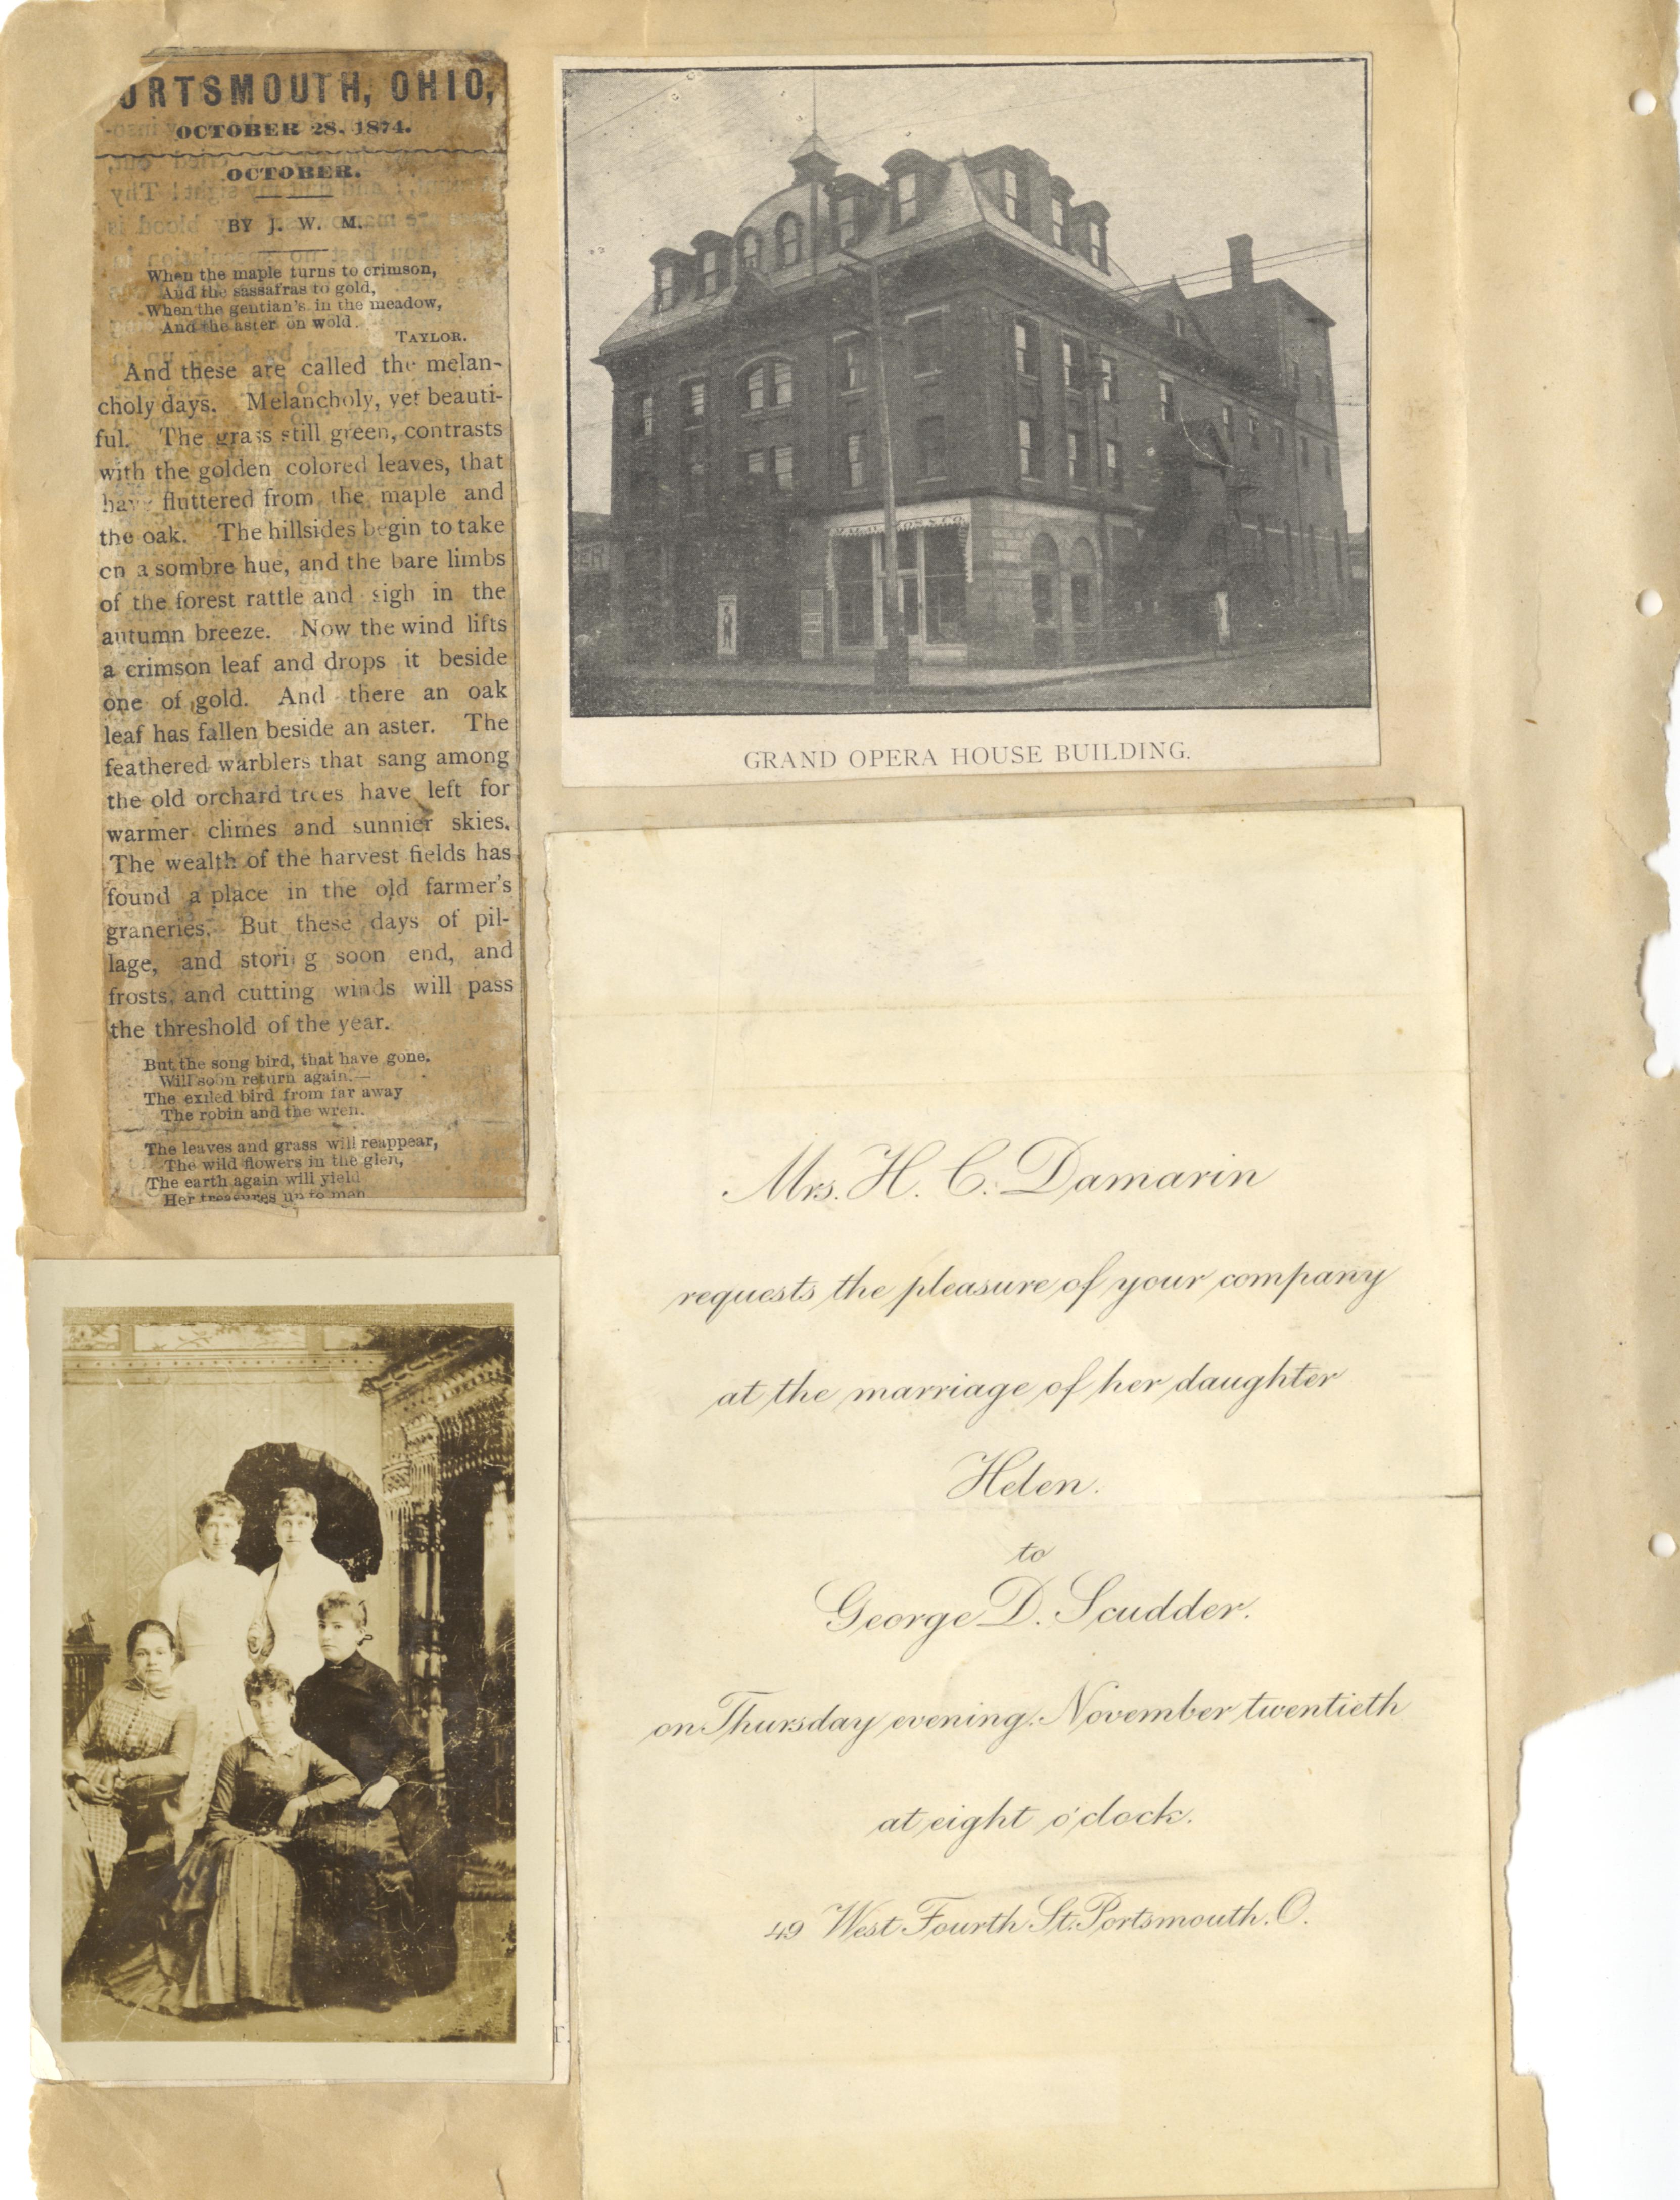 ORTSMOUTH, OHIO,
OCTOBER 28, 1874.
OCTOBER.
BY J. W. M.
When the maple turns to crimson,
And the sassafras to gold,
When the gentian's in the meadow,
And the aster on wold.
TAYLOR.
And these are called the melan-
choly days. Melancholy, yet beauti-
ful. The grass still green, contrasts
with the golden colored leaves, that
have fluttered from the maple and
the oak. The hillsides begin to take
on a sombre hue, and the bare limbs
of the forest rattle and sigh in the
autumn breeze. Now the wind lifts
a crimson leaf and drops it beside
one of gold. And there an oak
leaf has fallen beside an aster. The
feathered warblers that sang among
the old orchard trees have left for
warmer climes and sunnier skies.
The wealth of the harvest fields has
found a place in the old farmer's
graneries. But these days of pil-
lage, and stori g soon end, and
frosts, and cutting winds will pass
the threshold of the year.
But the song bird, that have gone.
Will soon return again.—
The exiled bird from far away
The robin and the wren.
The leaves and grass will reappear,
The wild flowers in the glen,
The earth again will yield
Her treasures up to man
GRAND OPERA HOUSE BUILDING.
Mrs. H. C. Damarin
requests the pleasure of your company
at the marriage of her daughter
Helen.
to
George D. Scudder.
on Thursday evening. November twentieth
at eight o'clock.
49 West Fourth St. Portsmouth. O.